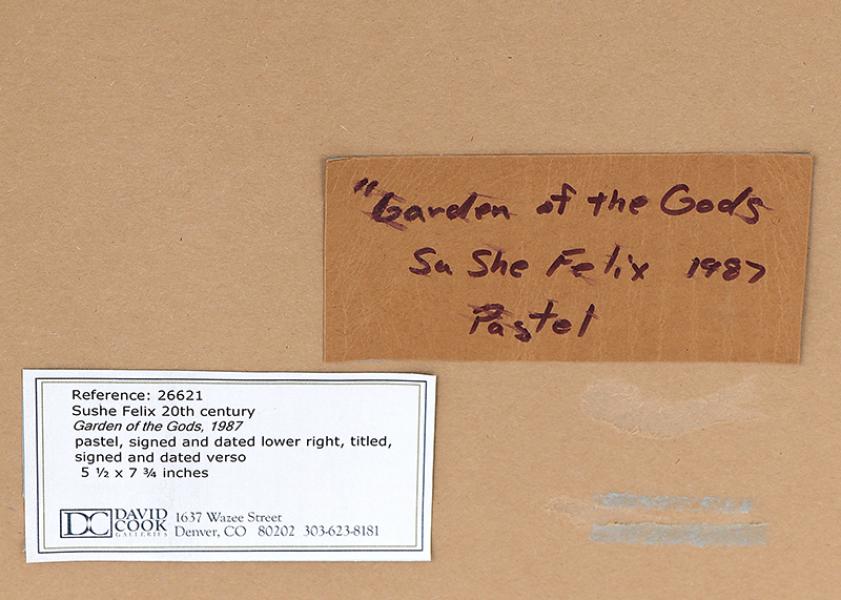 "Garden of the Gods
Su She Felix 1987
Pastel
Reference: 26621
Sushe Felix 20th century
Garden of the Gods, 1987
pastel, signed and dated lower right, titled,
signed and dated verso
5 ½ x 7 ¾ inches
DC DAVID COOK GALLERIES
1637 Wazee Street
Denver, CO 80202 303-623-8181